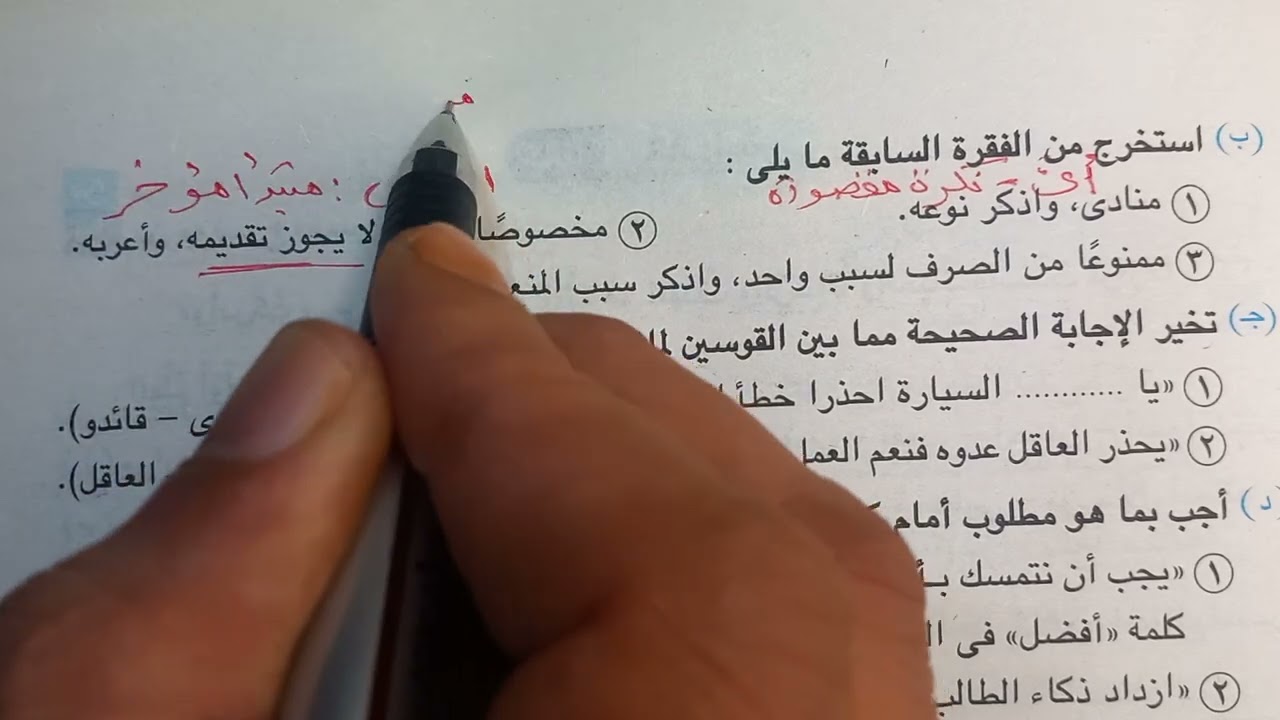 (ب) استخرج من الفقرة السابقة ما يلى :
أى - نكرة مقصودة
: مبتدأ مؤخر
١ منادى، واذكر نوعه.
٢ مخصوصًا لا يجوز تقديمه، وأعربه.
٣ ممنوعًا من الصرف لسبب واحد، واذكر سبب
(جـ) تخير الإجابة الصحيحة مما بين القوسين
١ «يا ............ السيارة احذرا – قائدو).
٢ «يحذر العاقل عدوه فنعم العاقل).
(د) أجب بما هو مطلوب أمام
١ «يجب أن نتمسك
كلمة «أفضل» فى
٢ «ازداد ذكاء الطالب